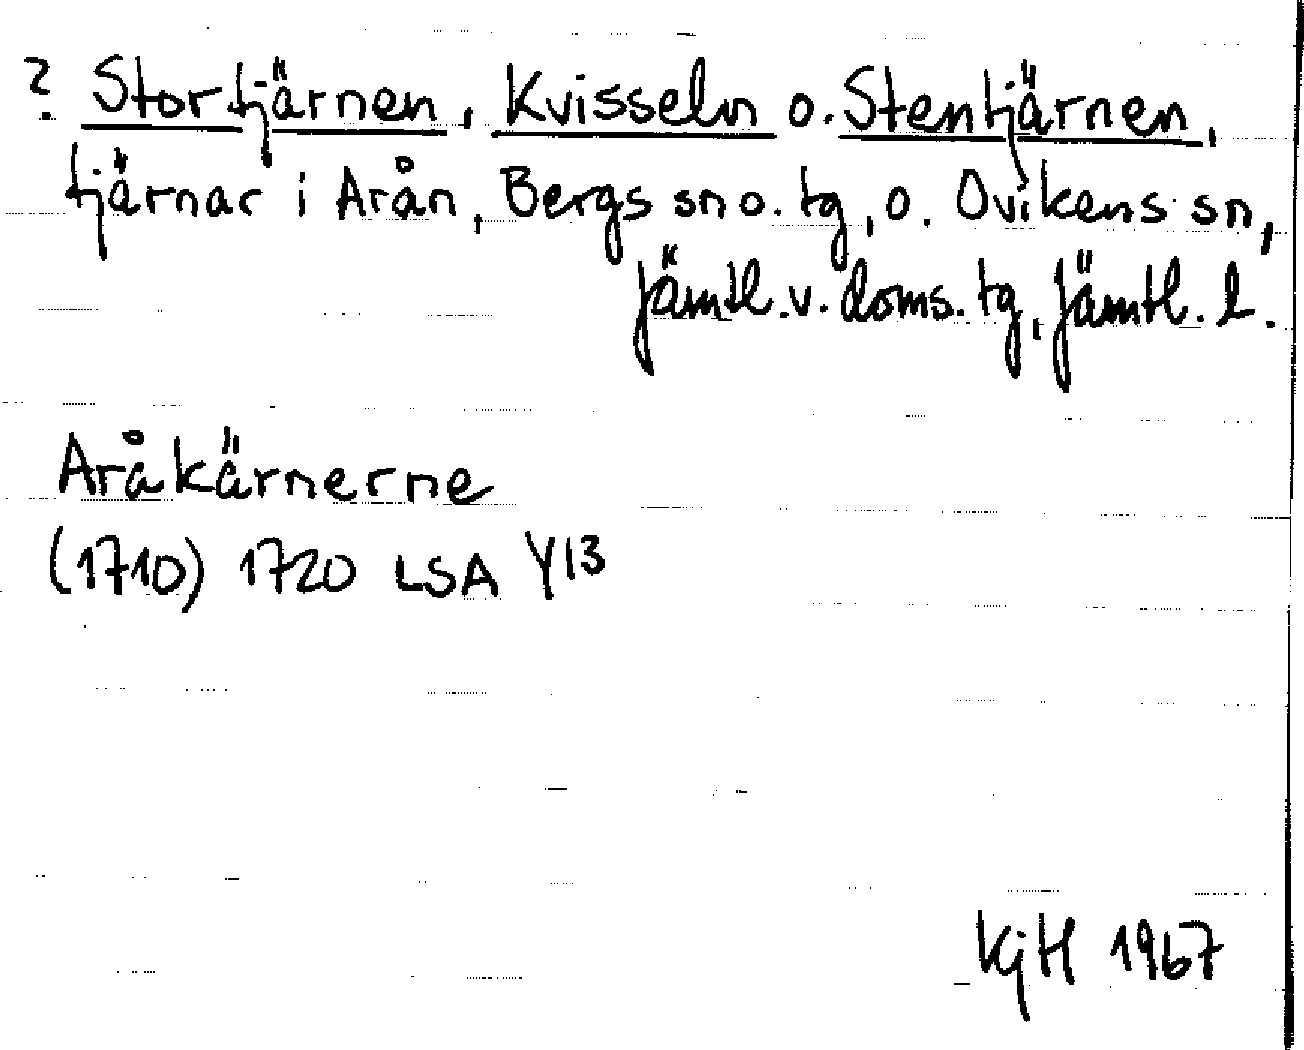 ? Stortjärnen, Kvisseln o. Stentjärnen,
tjärnar i Arån, Bergs sn o. tg, o. Ovikens sn,
Jämtl. v. doms. tg, Jämtl. l.
Aråkärnerne
(1710) 1720 LSA Y13
KjH 1967